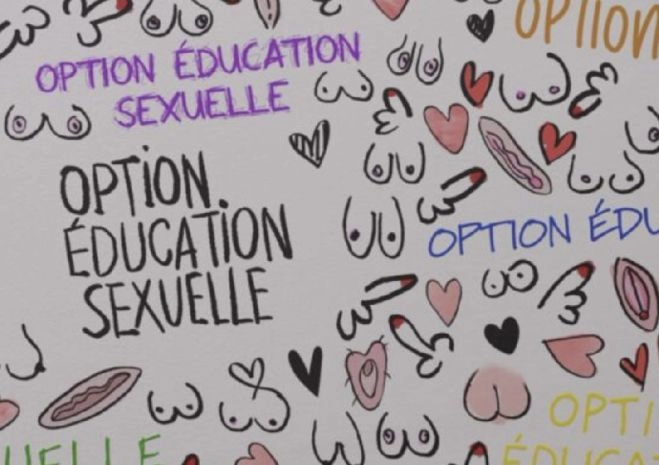 OPTION
OPTION ÉDUCATION
SEXUELLE
OPTION
ÉDUCATION
SEXUELLE
OPTION ÉDU
OPTI
ÉDUCAT
UELLE